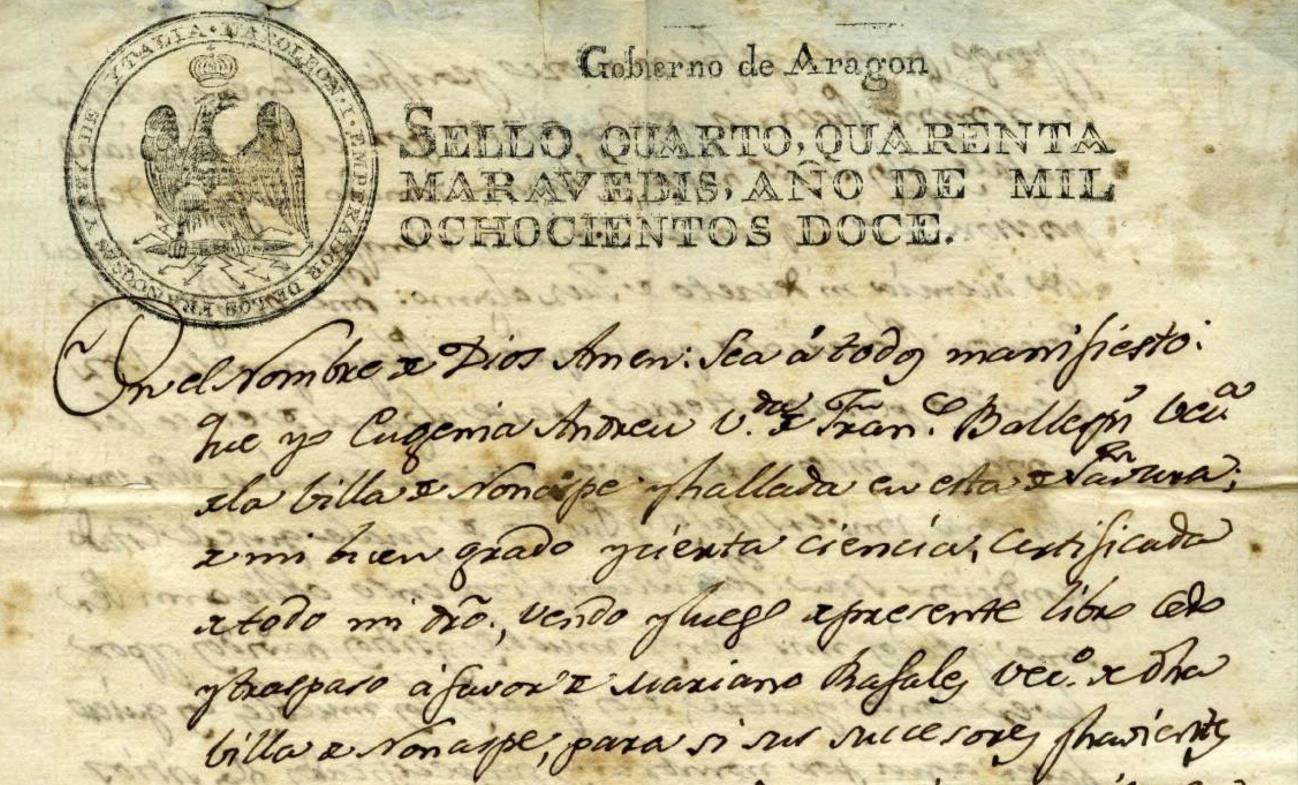 NAPOLEON · I · EMPERADOR DE LOS FRANCESES Y REY DE YTALIA ·
Gobierno de Aragon
SELLO QUARTO, QUARENTA
MARAVEDIS, AÑO DE MIL
OCHOCIENTOS DOCE.
En el Nombre de Dios Amen: Sea á todos manifiesto:
Que yo Eugenia Andreu v.da de Fran.co Ballespi vecª
de la billa de Nonaspe y hallada en esta de
de mi buen grado y cierta ciencia, certificada
de todo mi dro., vendo y luego de presente libro cedo
y traspaso á favor de Mariano Rafales vecº. de dha
billa de Nonaspe, para si sus sucesores y havientes